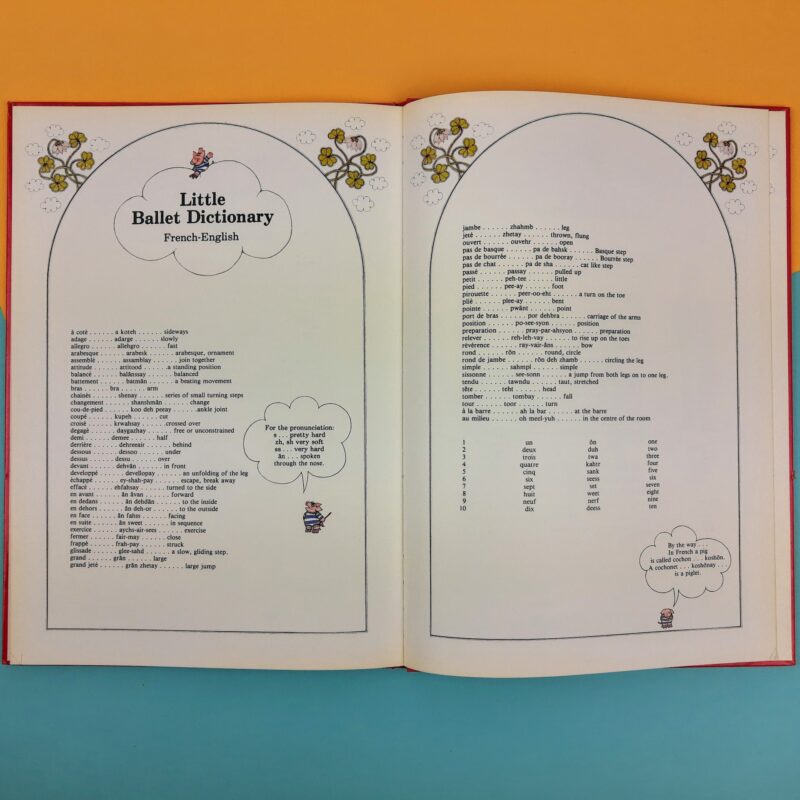 Little
Ballet Dictionary
French-English
à coté . . . . . . a koteh . . . . . . sideways
adage . . . . . . adarge . . . . . . slowly
allegro . . . . . . allehgro . . . . . . fast
arabesque . . . . . . arabesk . . . . . . arabesque, ornament
assemblé . . . . . . assamblay . . . . . . join together
attitude . . . . . . attitood . . . . . . a standing position
balancé . . . . . . balãnssay . . . . . . balanced
battement . . . . . . batmãn . . . . . . a beating movement
bras . . . . . . bra . . . . . . arm
chainés . . . . . . shenay . . . . . . series of small turning steps
changement . . . . . . shanshmãn . . . . . . change
cou-de-pied . . . . . . koo deh peeay . . . . . . ankle joint
coupé . . . . . . kupeh . . . . . . cut
croisé . . . . . . krwahsay . . . . . . crossed over
degagé . . . . . . daygazhay . . . . . . free or unconstrained
demi . . . . . . demee . . . . . . half
derrière . . . . . . dehreeair . . . . . . behind
dessous . . . . . . dessoo . . . . . . under
dessus . . . . . . dessu . . . . . . over
devant . . . . . . dehvãn . . . . . . in front
developpé . . . . . . devellopay . . . . . . an unfolding of the leg
échappé . . . . . . ey-shah-pay . . . . . . escape, break away
effacé . . . . . . ehfahsay . . . . . . turned to the side
en avant . . . . . . ãn ãvan . . . . . . forward
en dedans . . . . . . ãn dehdãn . . . . . . to the inside
en dehors . . . . . . ãn deh-or . . . . . . to the outside
en face . . . . . . ãn fahss . . . . . . facing
en suite . . . . . . ãn sweet . . . . . . in sequence
exercice . . . . . . aychs-air-sees . . . . . . exercise
fermer . . . . . . fair-may . . . . . . close
frappé . . . . . . frah-pay . . . . . . struck
glissade . . . . . . glee-sahd . . . . . . a slow, gliding step.
grand . . . . . . grãn . . . . . . large
grand jeté . . . . . . grãn zhetay . . . . . . large jump
For the pronunciation:
s . . . pretty hard
zh, sh very soft
ss . . . very hard
ãn . . . spoken
through the nose.
jambe . . . . . . zhahmb . . . . . . leg
jeté . . . . . . zhetay . . . . . . thrown, flung
ouvert . . . . . . ouvehr . . . . . . open
pas de basque . . . . . . pa de bahsk . . . . . . Basque step
pas de bourrée . . . . . . pa de booray . . . . . . Bourrée step
pas de chat . . . . . . pa de sha . . . . . . cat like step
passé . . . . . . passay . . . . . . pulled up
petit . . . . . . peh-tee . . . . . . little
pied . . . . . . pee-ay . . . . . . foot
pirouette . . . . . . peer-oo-eht . . . . . . a turn on the toe
plié . . . . . . plee-ay . . . . . . bent
pointe . . . . . . pwãnt . . . . . . point
port de bras . . . . . . por dehbra . . . . . . carriage of the arms
position . . . . . . po-see-syon . . . . . . position
preparation . . . . . . pray-par-ahsyon . . . . . . preparation
relever . . . . . . reh-leh-vay . . . . . . to rise up on the toes
révérence . . . . . . ray-vair-ãns . . . . . . bow
rond . . . . . . rõn . . . . . . round, circle
rond de jambe . . . . . . rõn deh zhamb . . . . . . circling the leg
simple . . . . . . sahmpl . . . . . . simple
sissonne . . . . . . see-sonn . . . . . . a jump from both legs on to one leg.
tendu . . . . . . tawndu . . . . . . taut, stretched
tête . . . . . . teht . . . . . . head
tomber . . . . . . tombay . . . . . . fall
tour . . . . . . toor . . . . . . turn
à la barre . . . . . . ah la bar . . . . . . at the barre
au milieu . . . . . . oh meel-yuh . . . . . . in the centre of the room
1 un õn one
2 deux duh two
3 trois twa three
4 quatre kahtr four
5 cinq sank five
6 six seess six
7 sept set seven
8 huit weet eight
9 neuf nerf nine
10 dix deess ten
By the way . . .
In French a pig
is called cochon . . . koshõn.
A cochonet . . . koshõnay . . .
is a piglet.